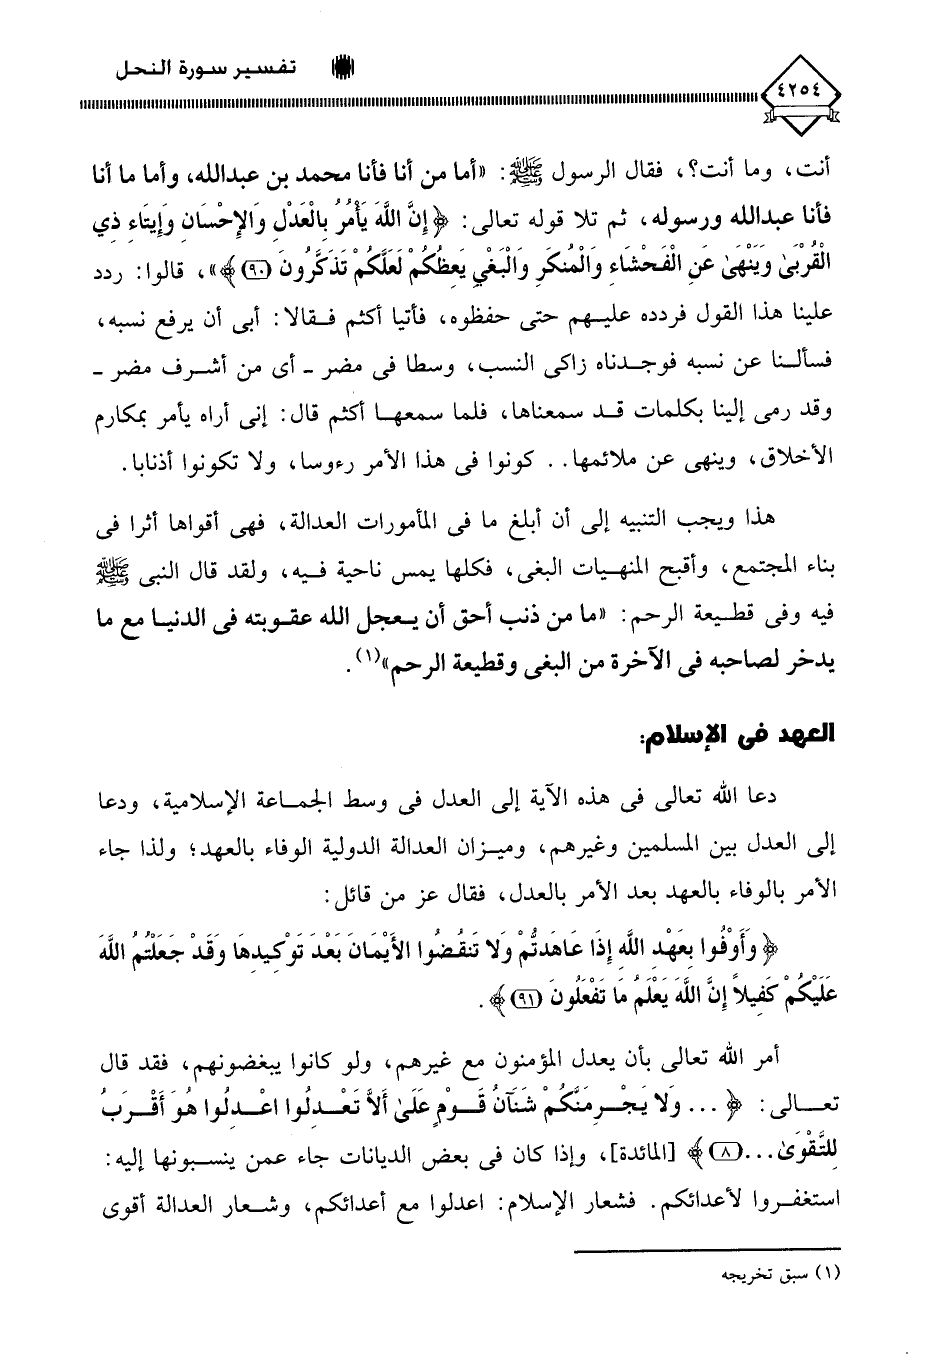 تفسير سورة النحل
٤٢٥٤
أنت، وما أنت؟، فقال الرسول ﷺ: «أما من أنا فأنا محمد بن عبدالله، وأما ما أنا
فأنا عبدالله ورسوله، ثم تلا قوله تعالى: ﴿ إِنَّ اللَّهَ يَأْمُرُ بِالْعَدْلِ وَالإِحْسَانِ وَإِيتَاءِ ذِي
الْقُرْبَىٰ وَيَنْهَىٰ عَنِ الْفَحْشَاءِ وَالْمُنكَرِ وَالْبَغْيِ يَعِظُكُمْ لَعَلَّكُمْ تَذَكَّرُونَ (٩٠) ﴾»، قالوا: ردد
علينا هذا القول فردده عليهم حتى حفظوه، فأتيا أكثم فقالا: أبى أن يرفع نسبه،
فسألنا عن نسبه فوجدناه زاكى النسب، وسطا فى مضر ـ أى من أشرف مضر ـ
وقد رمى إلينا بكلمات قد سمعناها، فلما سمعها أكثم قال: إنى أراه يأمر بمكارم
الأخلاق، وينهى عن ملائمها.. كونوا فى هذا الأمر رءوسا، ولا تكونوا أذنابا.
هذا ويجب التنبيه إلى أن أبلغ ما فى المأمورات العدالة، فهى أقواها أثرا فى
بناء المجتمع، وأقبح المنهيات البغى، فكلها يمس ناحية فيه، ولقد قال النبى ﷺ
فيه وفى قطيعة الرحم: «ما من ذنب أحق أن يعجل الله عقوبته فى الدنيا مع ما
يدخر لصاحبه فى الآخرة من البغى وقطيعة الرحم»(١).
العهد فى الإسلام:
دعا الله تعالى فى هذه الآية إلى العدل فى وسط الجماعة الإسلامية، ودعا
إلى العدل بين المسلمين وغيرهم، وميزان العدالة الدولية الوفاء بالعهد؛ ولذا جاء
الأمر بالوفاء بالعهد بعد الأمر بالعدل، فقال عز من قائل:
﴿ وَأَوْفُوا بِعَهْدِ اللَّهِ إِذَا عَاهَدتُّمْ وَلا تَنقُضُوا الأَيْمَانَ بَعْدَ تَوْكِيدِهَا وَقَدْ جَعَلْتُمُ اللَّهَ
عَلَيْكُمْ كَفِيلاً إِنَّ اللَّهَ يَعْلَمُ مَا تَفْعَلُونَ (٩١) ﴾.
أمر الله تعالى بأن يعدل المؤمنون مع غيرهم، ولو كانوا يبغضونهم، فقد قال
تعالى: ﴿ ... وَلا يَجْرِمَنَّكُمْ شَنَآنُ قَوْمٍ عَلَىٰ أَلاَّ تَعْدِلُوا اعْدِلُوا هُوَ أَقْرَبُ
لِلتَّقْوَىٰ... (٨) ﴾ [المائدة]، وإذا كان فى بعض الديانات جاء عمن ينسبونها إليه:
استغفروا لأعدائكم. فشعار الإسلام: اعدلوا مع أعدائكم، وشعار العدالة أقوى
(١) سبق تخريجه